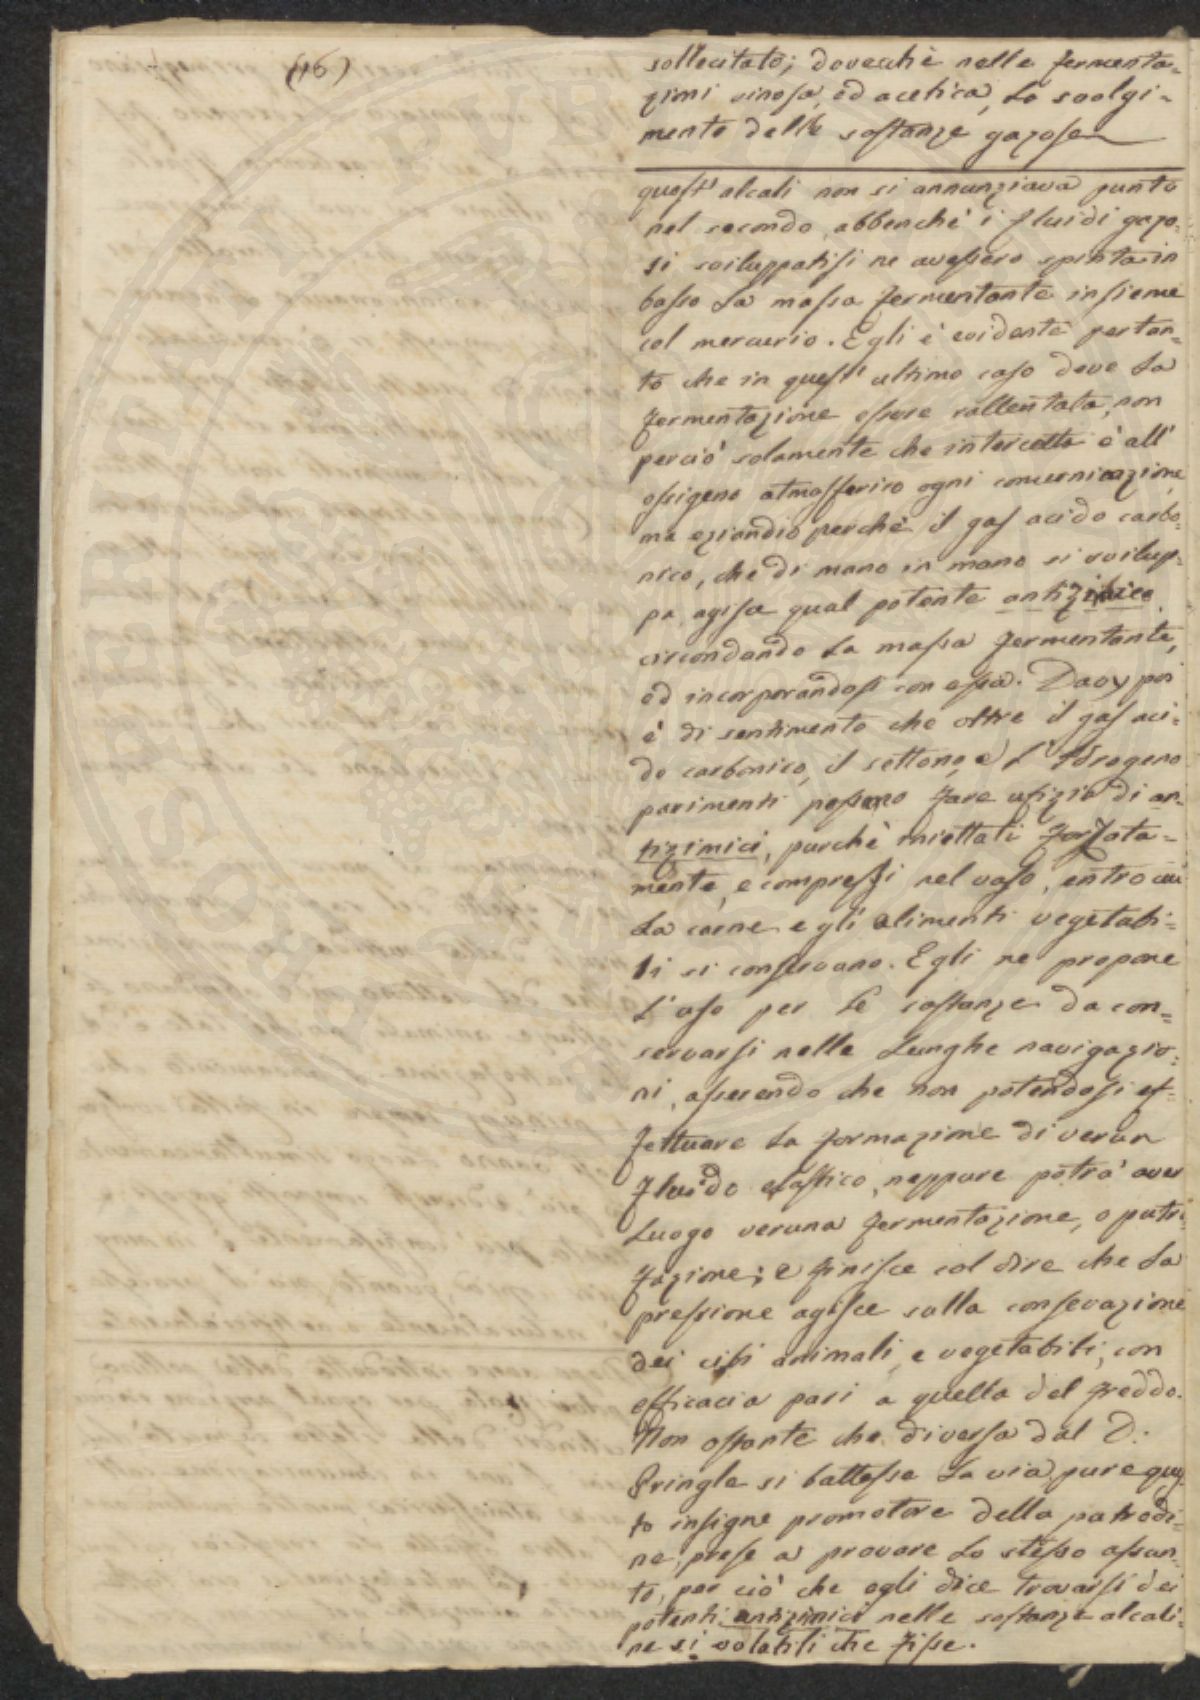 (16)
sollecitato; dovecchè nelle fermenta=
zioni vinosa, ed acetica, lo svolgi=
mento delle sostanze gazose
quest' alcali non si annunziava punto
nel secondo, abbenchè i fluidi gazo=
si sviluppatisi ne avessero spinta in
basso la massa fermentante insieme
col mercurio. Egli è evidente pertan=
to che in quest' ultimo caso deve la
fermentazione essere rallentata, non
perciò solamente che intercetta è all'
ossigeno atmosferico ogni comunicazione,
ma eziandio perchè il gas acido carbo=
nico, che di mano in mano si svilup=
pa, agisce qual potente antizimico,
circondando la massa fermentante,
ed incorporandosi con essa. Davy poi
è di sentimento che oltre il gas aci=
do carbonico, il settono, e l' Idrogeno
parimenti possano fare ufizio di an=
tizimici, purchè iniettati forzata=
mente, e compressi nel vaso, entro cui
la carne e gli alimenti vegetabi=
li si conservano. Egli ne propone
l' uso per le sostanze da con=
servarsi nelle lunghe navigazio=
ni, asserendo che non potendosi ef=
fettuare la formazione di verun
fluido elastico, neppure potrà aver
luogo veruna fermentazione, o putre=
fazione; e finisce col dire che la
pressione agisce sulla consevazione
dei cibi animali, e vegetabili, con
efficacia pari a quella del freddo.
Non ostante che diversa dal D.
Pringle si battesse la via, pure ques=
to insigne promotore della
prese a provare lo stesso assun=
to, per ciò che egli dice trovarsi dei
potenti antizimici nelle sostanze alcali=
ne si volatili che fisse.